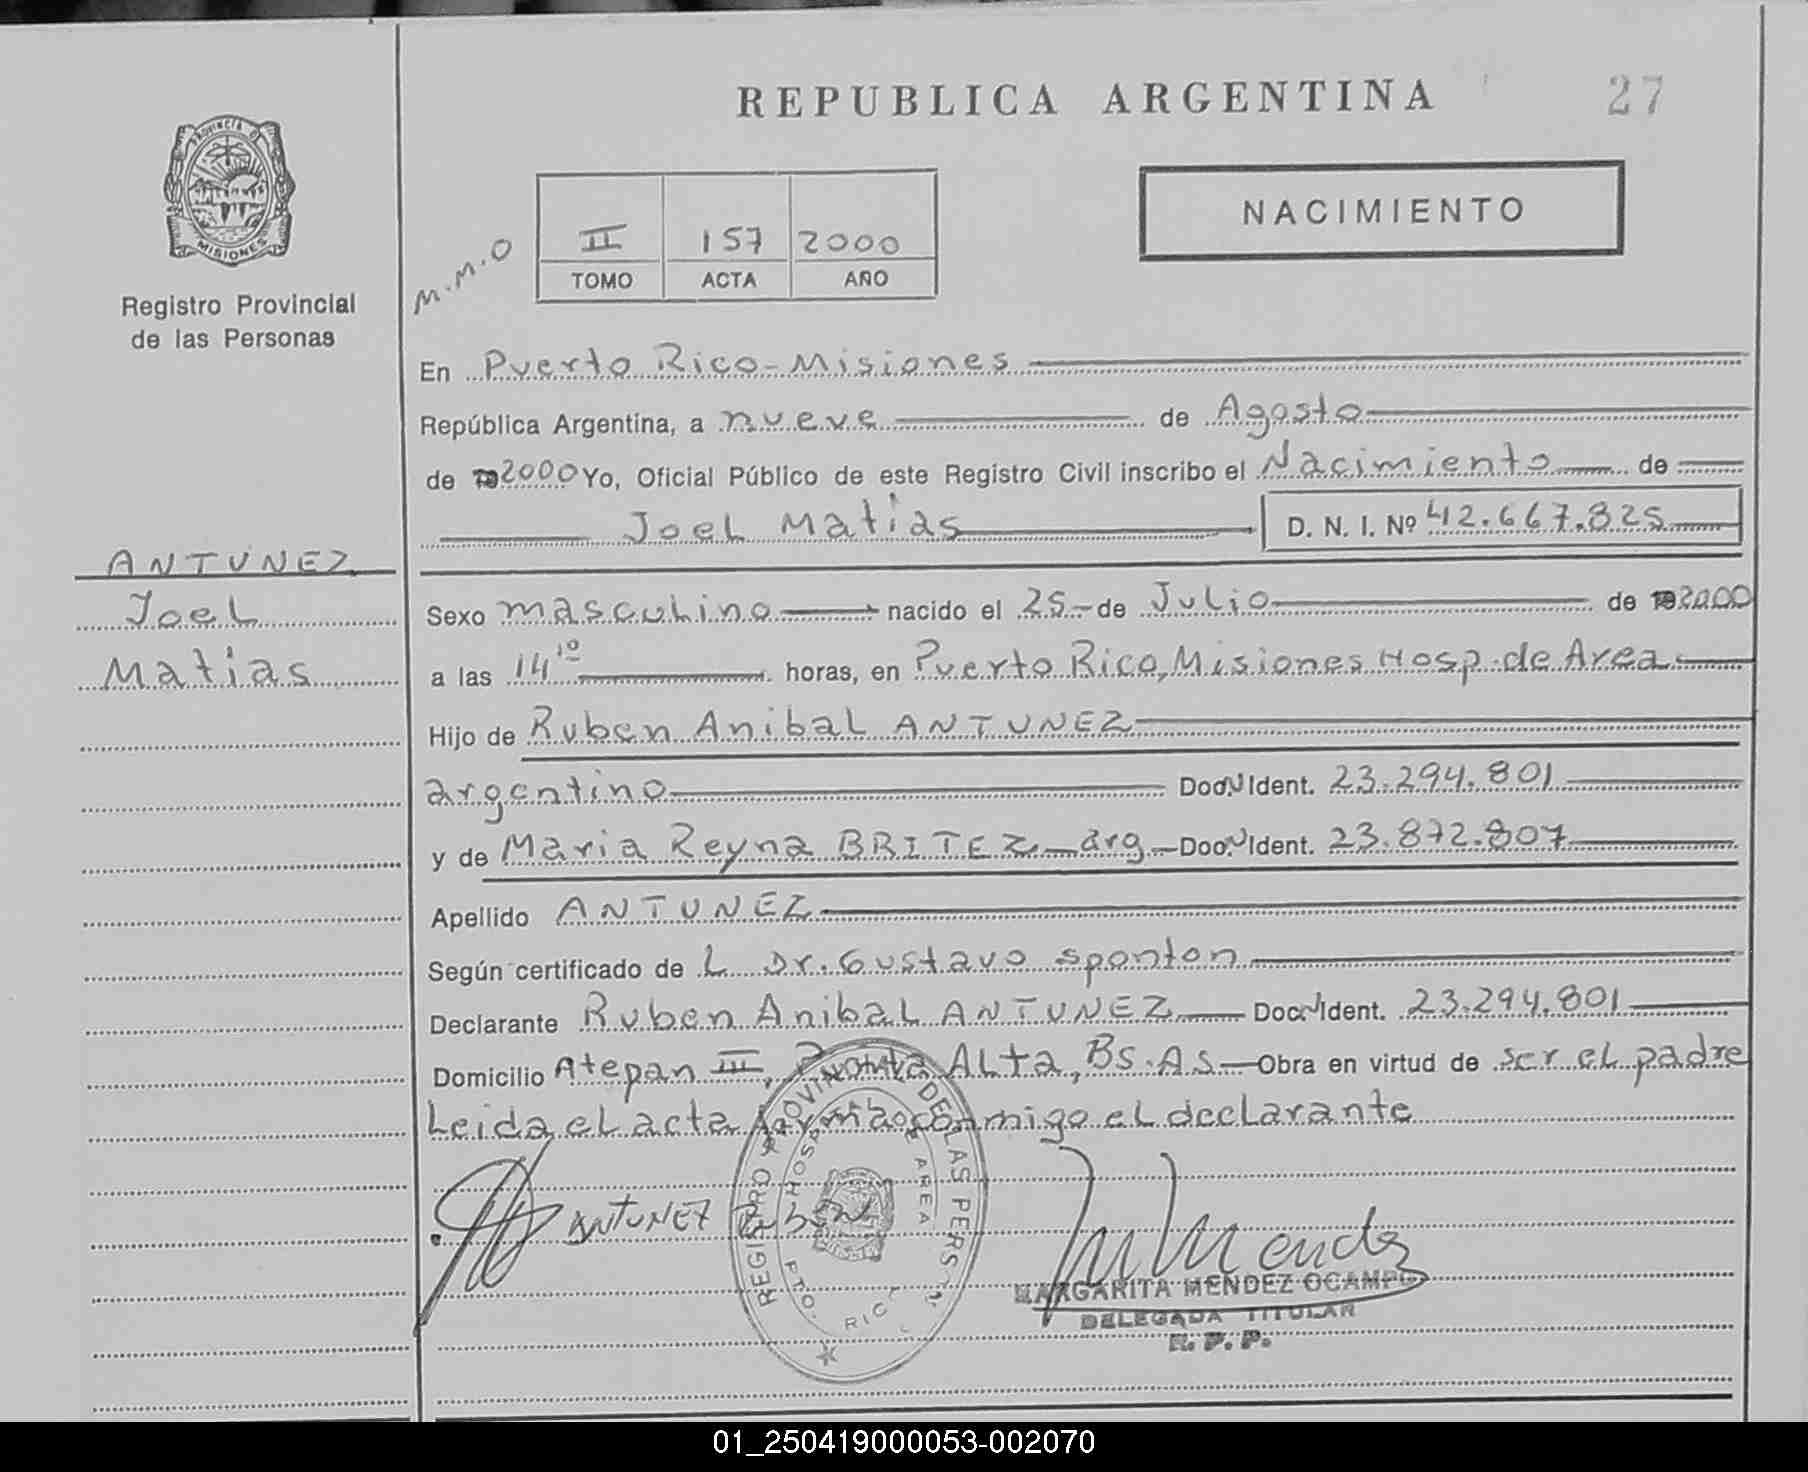 REPUBLICA ARGENTINA 27
PROVINCIA D
MISIONES
Registro Provincial
de las Personas
NACIMIENTO
M.M.O
II 157 2000
TOMO ACTA AÑO
En Puerto Rico-Misiones
República Argentina, a nueve de Agosto
de 2000 Yo, Oficial Público de este Registro Civil inscribo el Nacimiento de
Joel Matias D. N. I. Nº 42.667.825
ANTUNEZ
Joel
Matias
Sexo masculino nacido el 25 - de Julio de 2000
a las 14 10 horas, en Puerto Rico, Misiones Hosp. de Area
Hijo de Ruben Anibal ANTUNEZ
argentino Doc. N Ident. 23.294.801
y de Maria Reyna BRITEZ arg Doc. N Ident. 23.872.807
Apellido ANTUNEZ
Según certificado de L Dr. Gustavo Sponton
Declarante Ruben Anibal ANTUNEZ Doc. N Ident. 23.294.801
Domicilio Atepan III, Punta ALta, Bs. As Obra en virtud de ser el padre
Leida el acta firma conmigo el declarante
ANTUNEZ Ruben
REGISTRO PROVINCIAL DE LAS PERS
HOSP AREA
PTO. RICO
M Mendez
MARGARITA MENDEZ OCAMPO
DELEGADA TITULAR
R. P. P.
01_250419000053-002070